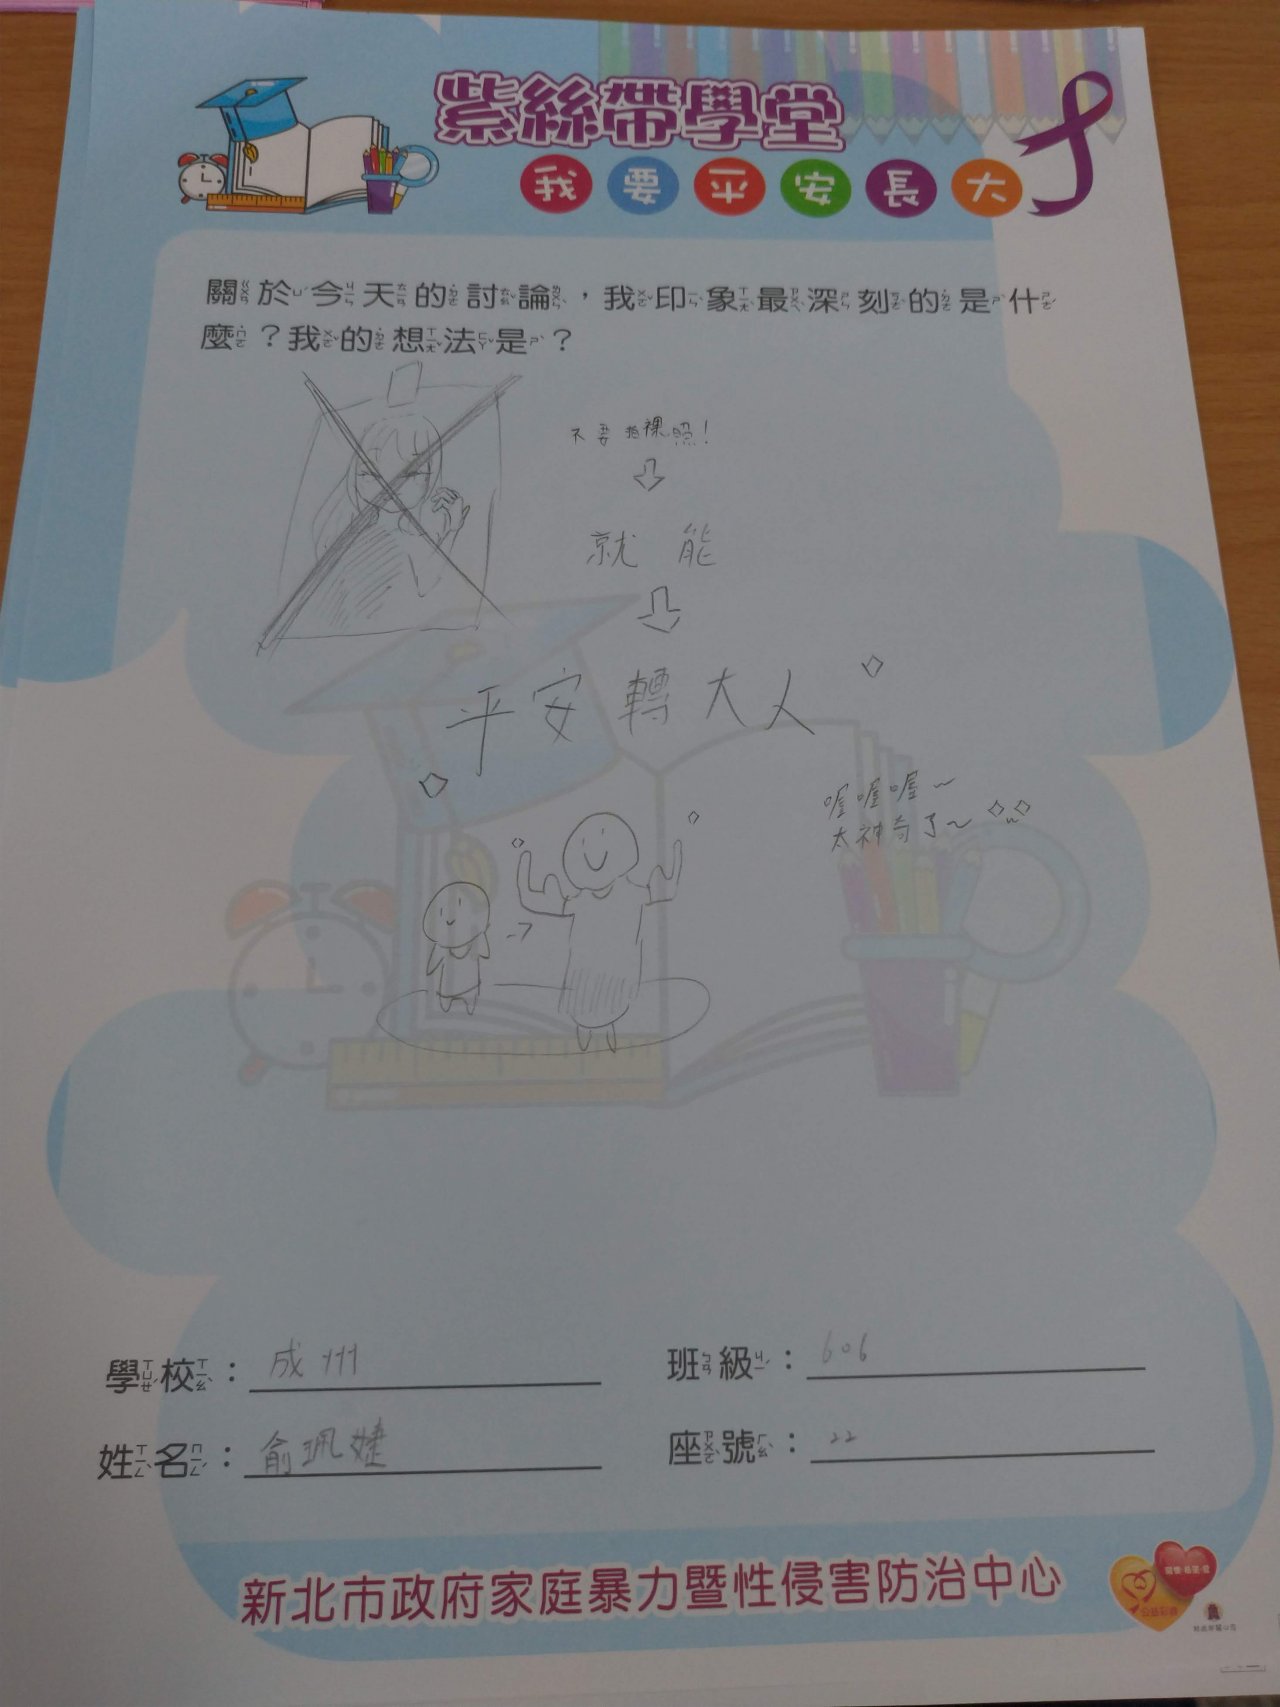 紫絲帶學堂
我要平安長大
關於今天的討論，我印象最深刻的是什
麼？我的想法是？
不要拍裸照！
就能
平安轉大人
喔喔喔～
太神奇了～
學校：成州
班級：606
姓名：俞珮婕
座號：22
新北市政府家庭暴力暨性侵害防治中心
公益彩券